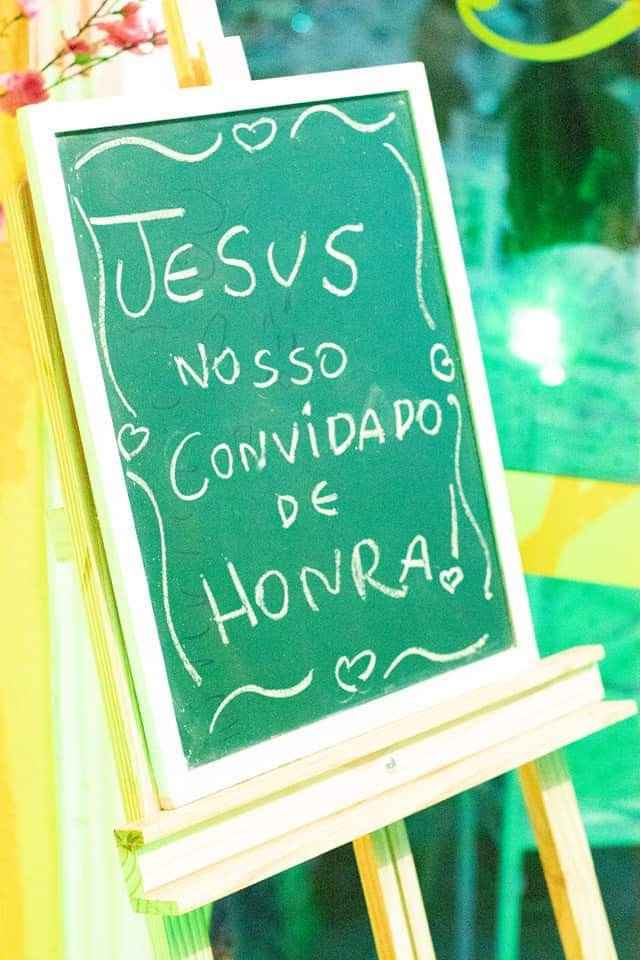 JESUS
NOSSO
CONVIDADO
DE
HONRA!